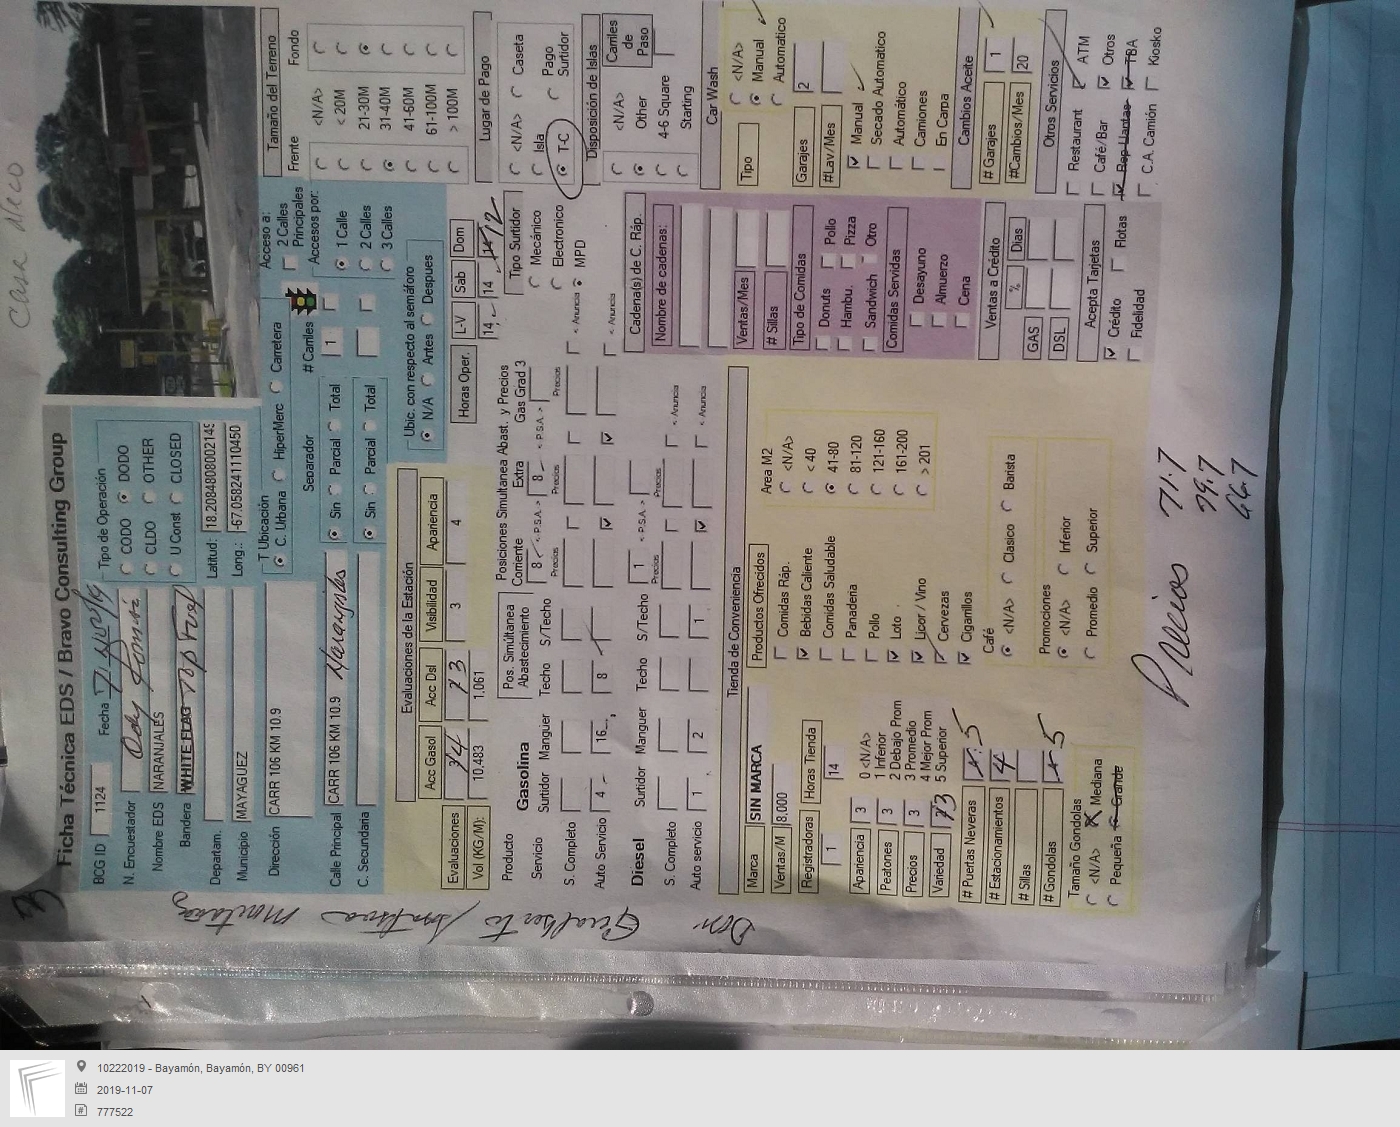 Ficha Técnica EDS / Bravo Consulting Group
BCG ID 1124 Fecha
N. Encuestador
Nombre EDS NARANJALES
Bandera WHITE FLAG Top Fuel
Departam.
Municipio MAYAGUEZ
Dirección CARR 106 KM 10.9
Calle Principal CARR 106 KM 10.9
C. Secundaria
Tipo de Operación
CODO DODO
CLDO OTHER
U Const CLOSED
Latitud: 18.2084808002149
Long.: -67.0582411110450
T Ubicación
C. Urbana HiperMerc Carretera
Separador # Carriles
Sin Parcial Total 1
Sin Parcial Total
Acceso a:
2 Calles Principales
Accesos por:
1 Calle
2 Calles
3 Calles
Ubic. con respecto al semáforo
N/A Antes Despues
Tamaño del Terreno
Frente Fondo
<N/A>
< 20M
21-30M
31-40M
41-60M
61-100M
> 100M
Evaluaciones de la Estación
Evaluaciones Acc Gasol Acc Dsl Visibilidad Apariencia
3 4
Vol (KG/M): 10,483 1,061
Horas Oper. L-V Sab Dom
14 14 12
Lugar de Pago
<N/A> Caseta
Isla Pago Surtidor
T-C
Producto Gasolina
Pos. Simúltanea Abastecimiento
Posiciones Simultanea Abast. y Precios
Corriente Extra Gas Grad 3
Servicio Surtidor Manguer Techo S/Techo
8 <-P.S.A.-> 8 <-P.S.A.->
Precios Precios Precios
S. Completo <- Anuncia
Auto Servicio 4 16 8 <- Anuncia
Tipo Surtidor
Mecánico
Electronico
MPD
Diesel Surtidor Manguer Techo S/Techo
1 <-P.S.A.->
Precios Precios
S. Completo <- Anuncia
Auto servicio 1 2 1 <- Anuncia
Disposición de Islas
<N/A>
Other
4-6 Square
Starting
Carriles de Paso
Tienda de Conveniencia
Marca SIN MARCA
Ventas/M 8,000
Registradoras Horas Tienda
1 14
Apariencia 3
Peatones 3
Precios 3
Variedad 3
0 <N/A>
1 Inferior
2 Debajo Prom
3 Promedio
4 Mejor Prom
5 Superior
# Puertas Neveras 5
# Estacionamientos 4
# Sillas
# Gondolas 5
Tamaño Gondolas
<N/A> Mediana
Pequeña Grande
Productos Ofrecidos
Comidas Ráp.
Bebidas Caliente
Comidas Saludable
Panaderia
Pollo
Loto
Licor / Vino
Cervezas
Cigarrillos
Café
<N/A> Clasico Barista
Promociones
<N/A> Inferior
Promedio Superior
Area M2
<N/A>
< 40
41-80
81-120
121-160
161-200
> 201
Cadena(s) de C. Ráp.
Nombre de cadenas:
Ventas/Mes
# Sillas
Tipo de Comidas
Donuts Pollo
Hambu. Pizza
Sandwich Otro
Comidas Servidas
Desayuno
Almuerzo
Cena
Ventas a Crédito
% Dias
GAS
DSL
Acepta Tarjetas
Crédito Flotas
Fidelidad
Car Wash
Tipo
<N/A>
Manual
Automatico
Garajes 2
#Lav/Mes
Manual
Secado Automatico
Automático
Camiones
En Carpa
Cambios Aceite
# Garajes 1
#Cambios/Mes 20
Otros Servicios
Restaurant ATM
Café/Bar Otros
Rep Llantas TBA
C.A. Camión Kiosko
Precios 71.7
79.7
66.7
10222019 - Bayamón, Bayamón, BY 00961
2019-11-07
777522